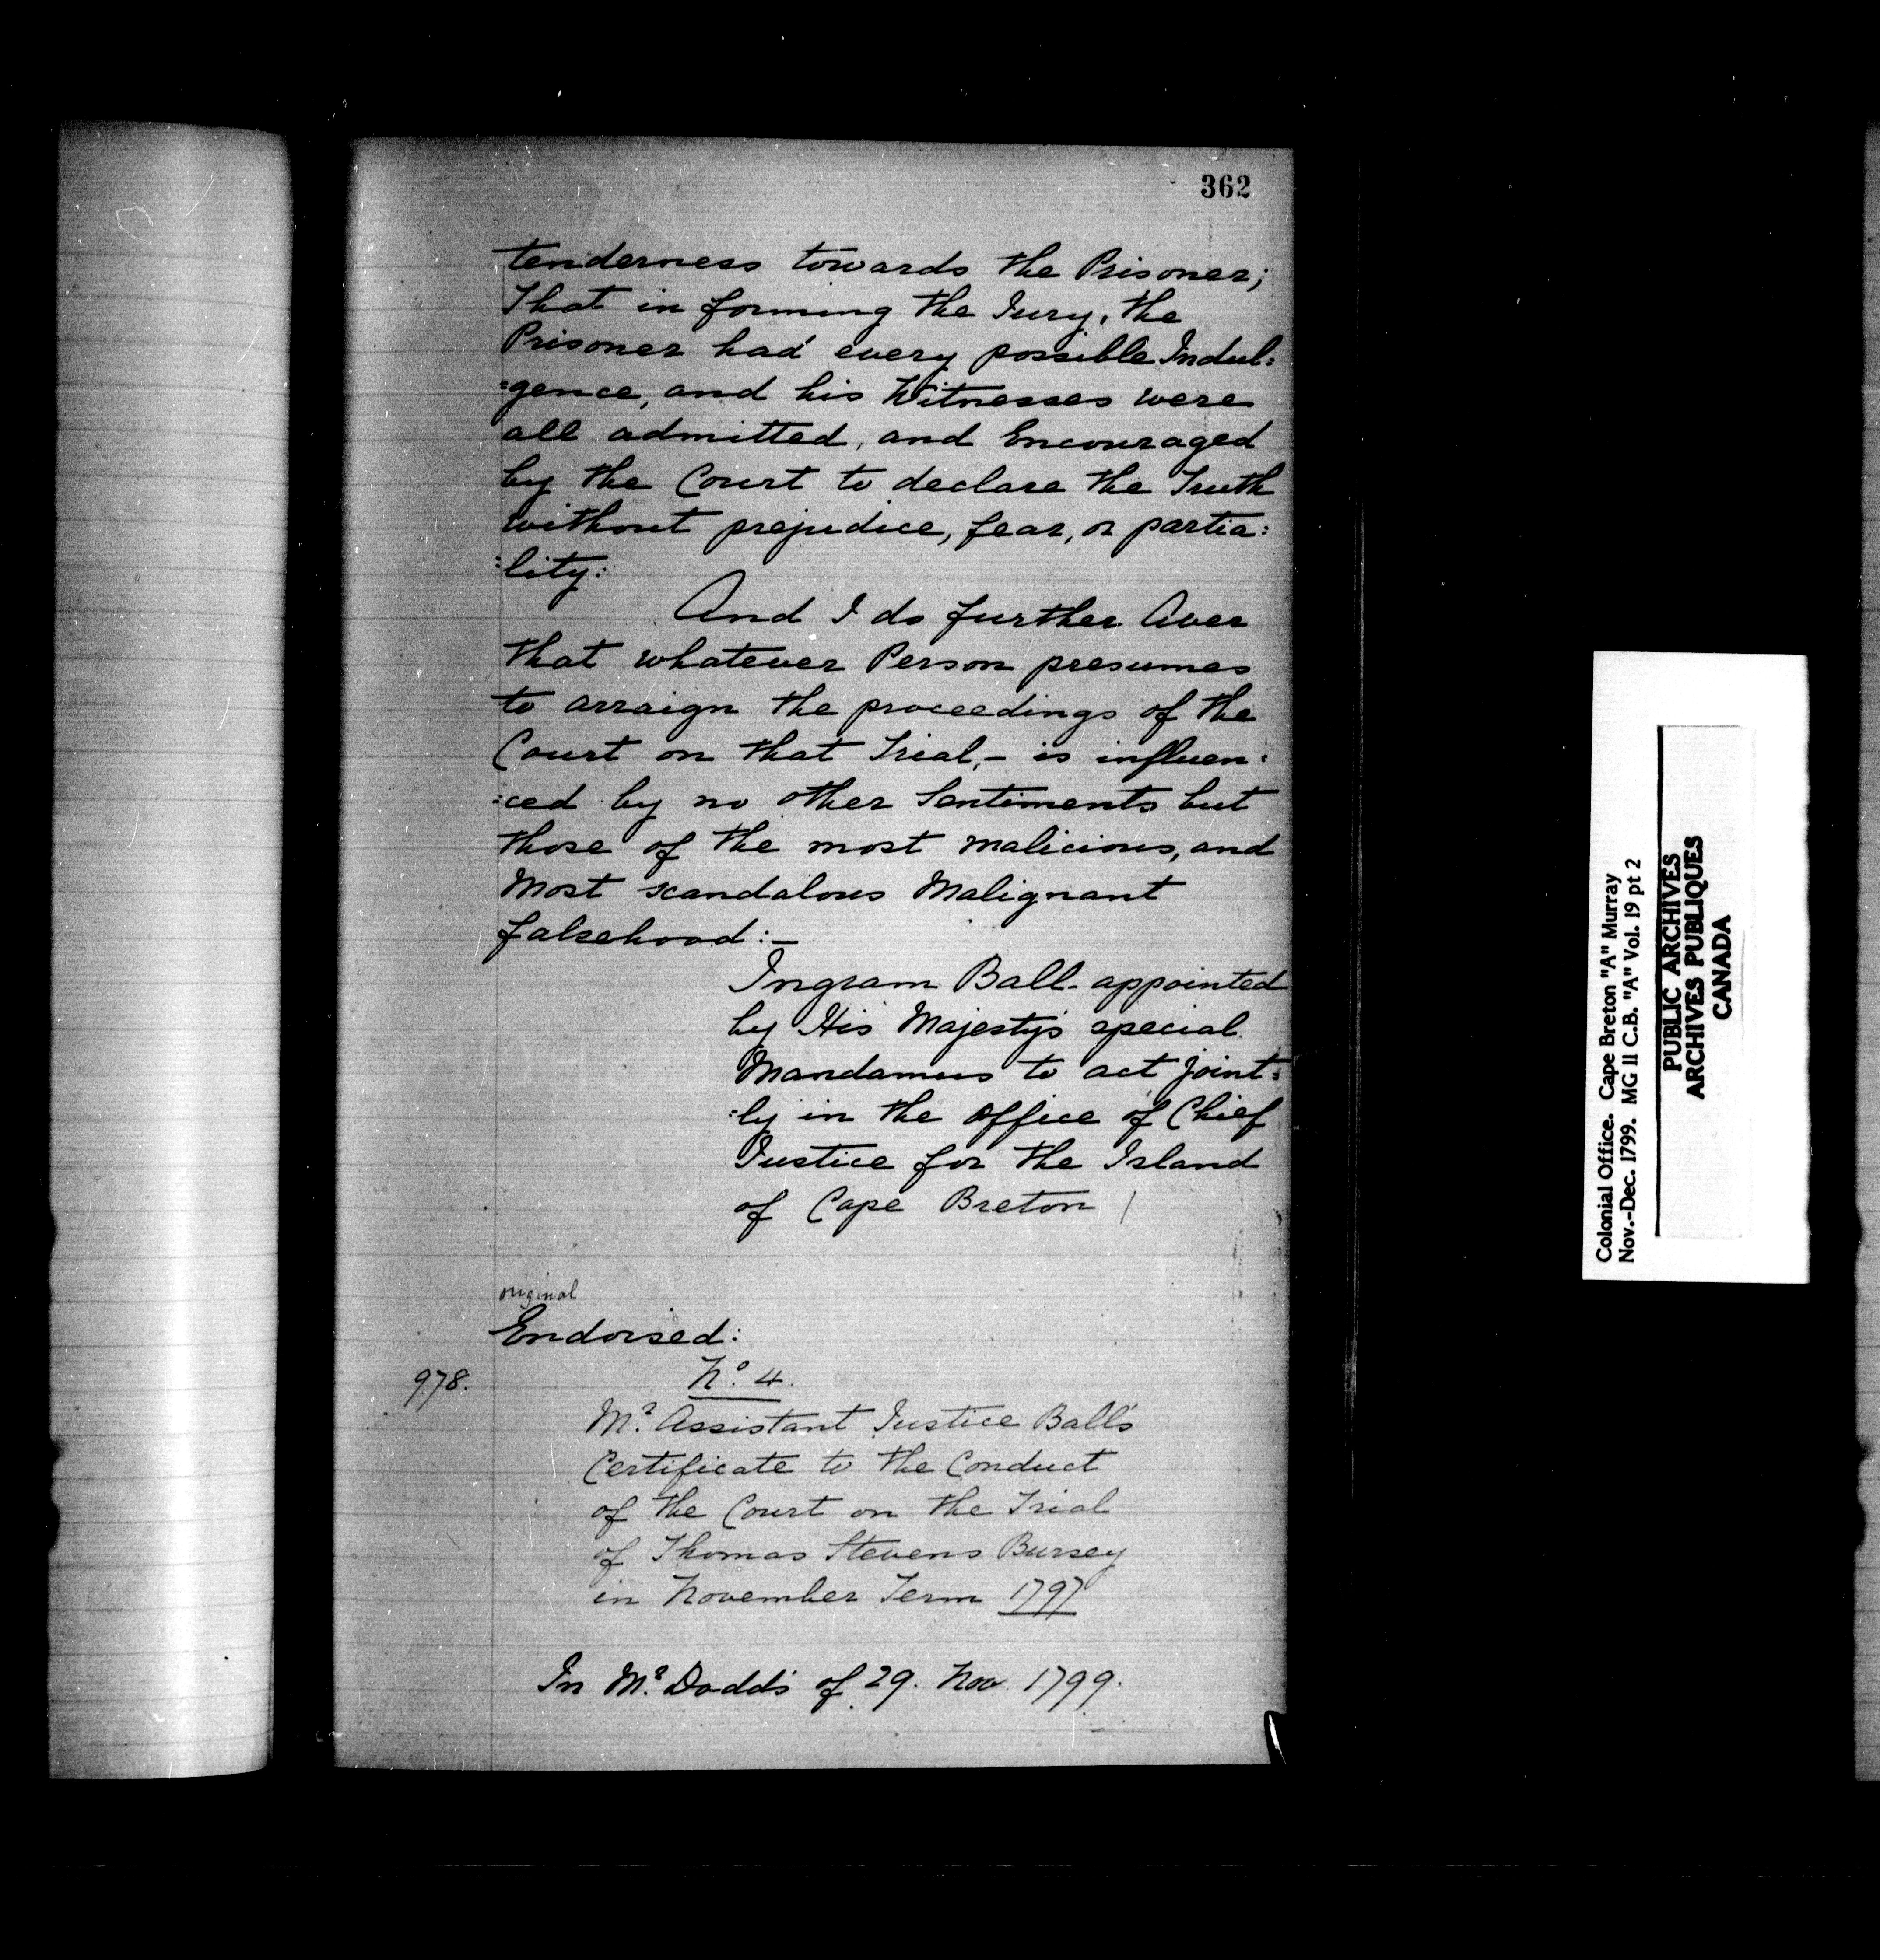 362
tenderness towards the Prisoner;
That in forming the Jury, the
Prisoner had every possible Indul=
=gence, and his Witnesses were
all admitted, and Encouraged
by the Court to declare the Truth
without prejudice, fear, or partia:
:lity:
And I do further Aver
that whatever Person presumes
to arraign the proceedings of the
Court on that Trial,- is influen:
:ced by no other Sentiments but
those of the most malicious, and
Most scandalous Malignant
falsehood:-
Ingram Ball- appointed
by His Majesty's special
Mandamus to act joint=
:ly in the office of Chief
Justice for the Island
of Cape Breton /
original
Endorsed:
978.
No. 4.
Mr. Assistant Justice Ball's
Certificate to the Conduct
of the Court on the Trial
of Thomas Stevens Bursey
in November Term 1797
In Mr. Dodd's of 29. Nov. 1799.
Colonial Office. Cape Breton "A" Murray
Nov.-Dec. 1799. MG 11 C.B. "A" Vol. 19 pt 2
PUBLIC ARCHIVES
ARCHIVES PUBLIQUES
CANADA